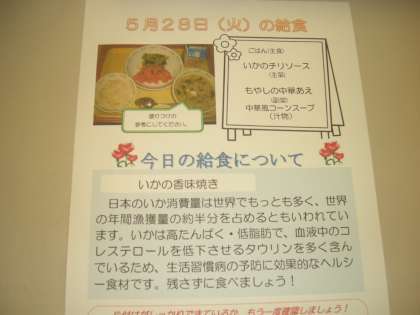 ５月２８日（火）の給食
ごはん(主食)
いかのチリソース
(主菜)
もやしの中華あえ
(副菜)
中華風コーンスープ
(汁物)
盛りつけの
参考にしてください。
今日の給食について
いかの香味焼き
日本のいか消費量は世界でもっとも多く、世界
の年間漁獲量の約半分を占めるともいわれていま
す。いかは高たんぱく・低脂肪で、血液中のコ
レステロールを低下させるタウリンを多く含ん
でいるため、生活習慣病の予防に効果的なヘルシ
ー食材です。残さずに食べましょう！
もう一度確認しましょう！